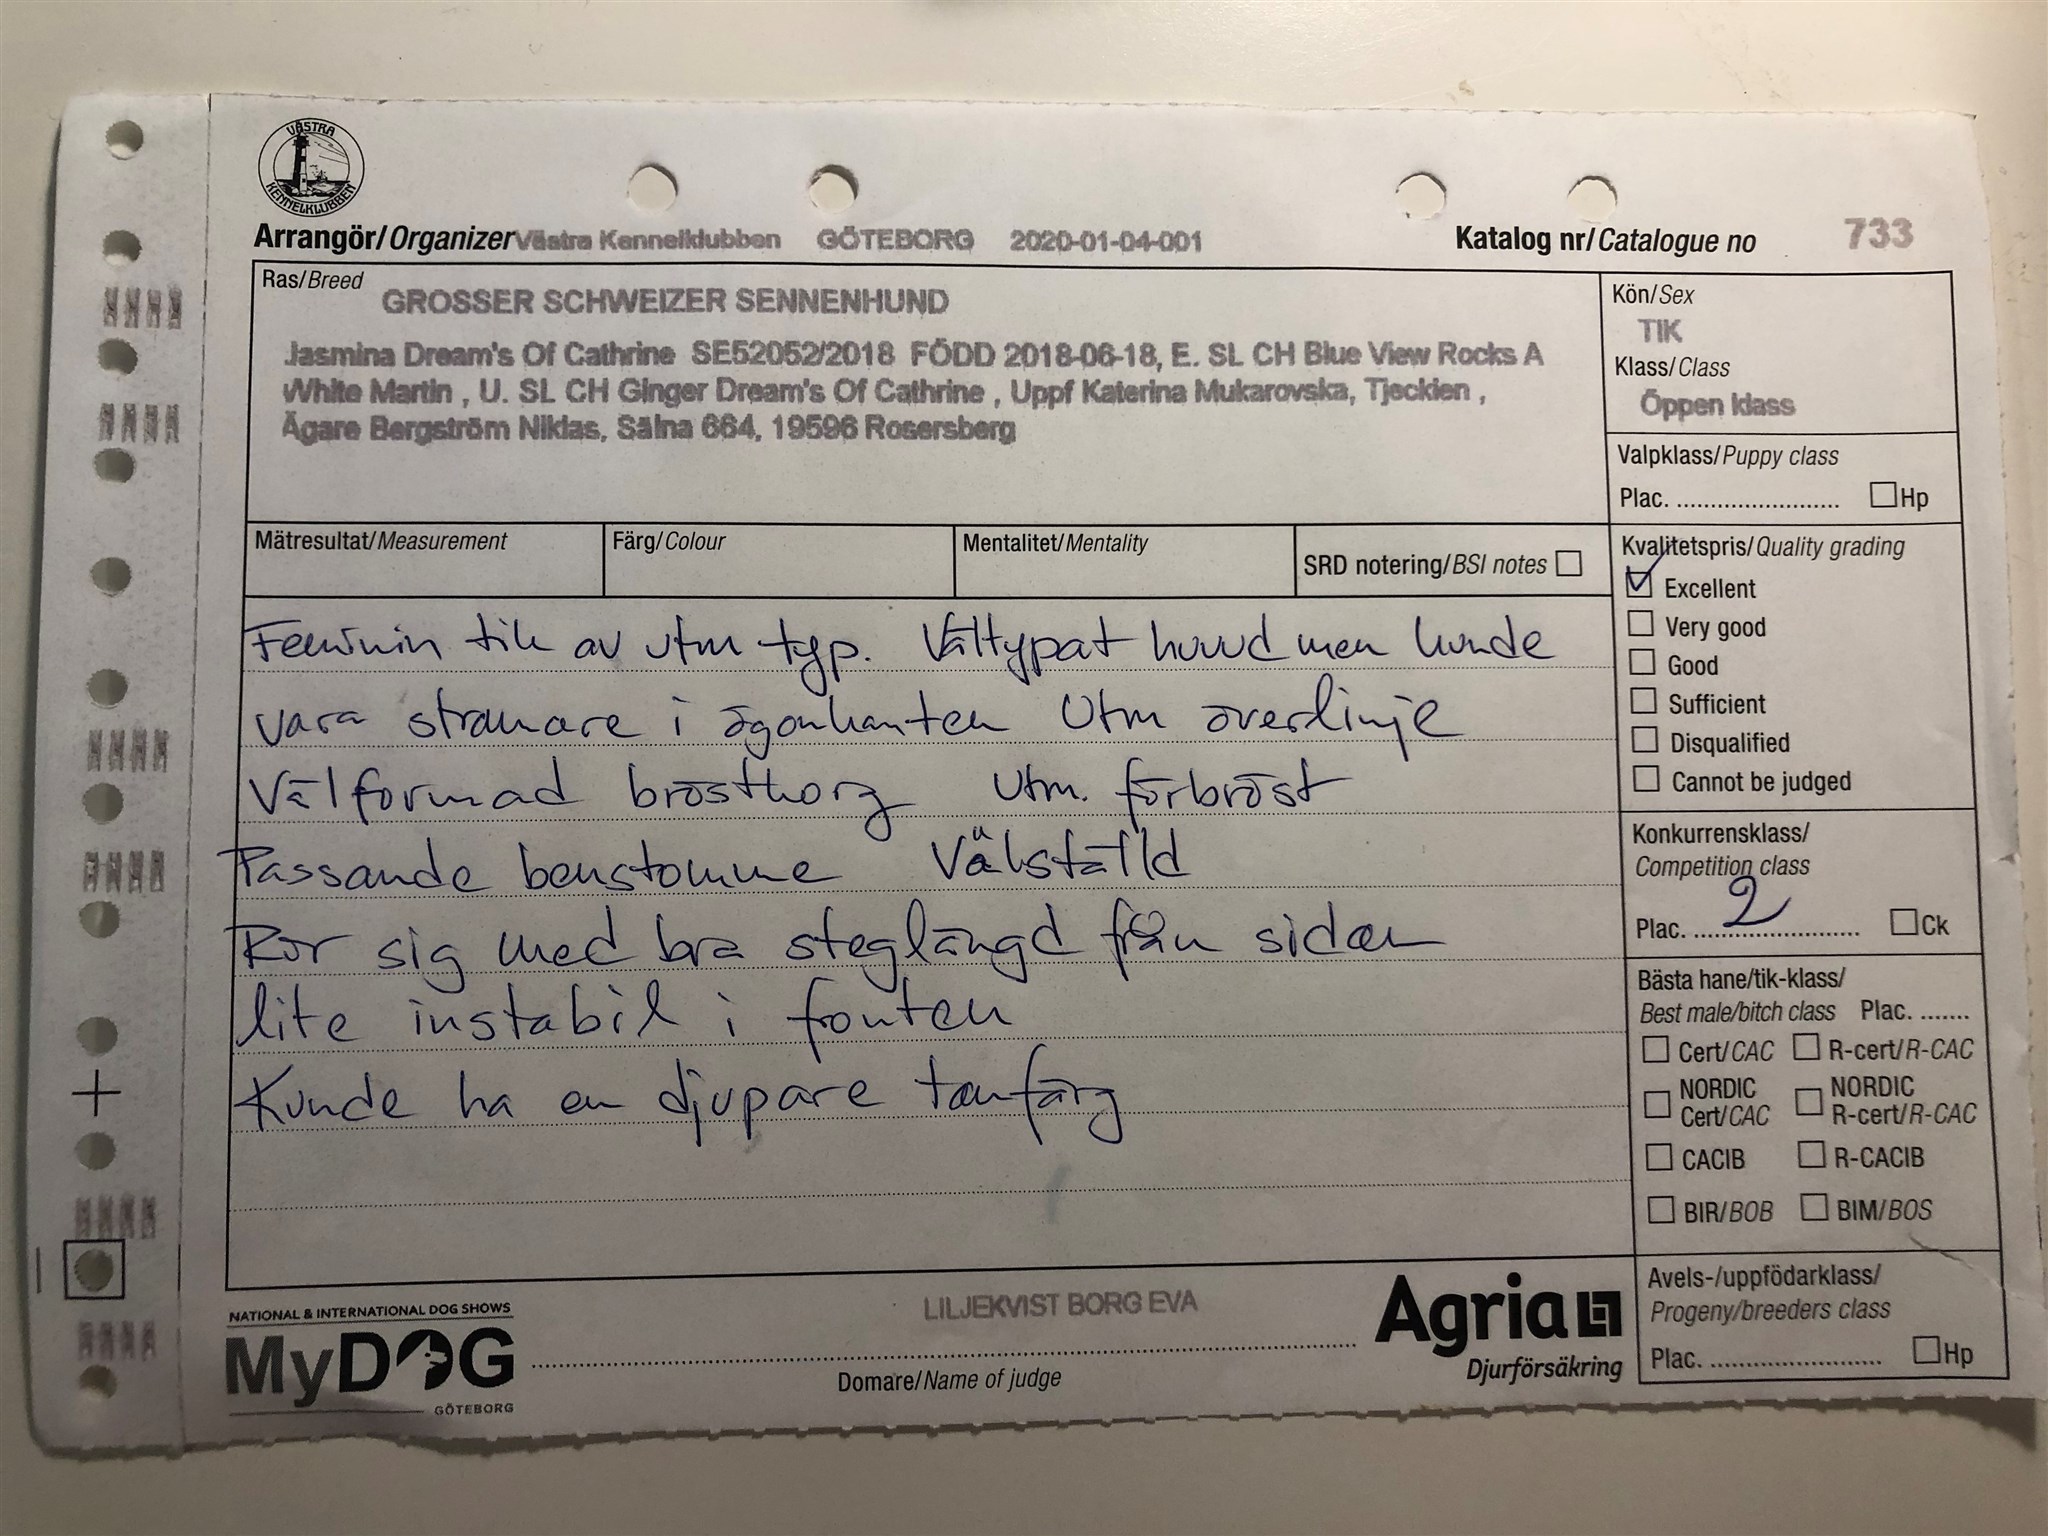 VÄSTRA
KENNELKLUBBEN
Arrangör/Organizer Västra Kennelklubben GÖTEBORG 2020-01-04-001 Katalog nr/Catalogue no 733
Ras/Breed
GROSSER SCHWEIZER SENNENHUND
Jasmina Dream's Of Cathrine SE52052/2018 FÖDD 2018-06-18, E. SL CH Blue View Rocks A
White Martin , U. SL CH Ginger Dream's Of Cathrine , Uppf Katerina Mukarovska, Tjeckien ,
Ägare Bergström Niklas, Sälna 664, 19596 Rosersberg
Kön/Sex
TIK
Klass/Class
Öppen klass
Valpklass/Puppy class
Plac. .......................... Hp
Mätresultat/Measurement Färg/Colour Mentalitet/Mentality SRD notering/BSI notes
Feminin tik av utm typ. Vältypat huvud men kunde
vara stramare i ögonkanten Utm överlinje
Välformad bröstkorg Utm. förbröst
Passande benstomme Välställd
Rör sig med bra steglängd från sidan
lite instabil i fronten
Kunde ha en djupare tanfärg
Kvalitetspris/Quality grading
Excellent
Very good
Good
Sufficient
Disqualified
Cannot be judged
Konkurrensklass/
Competition class
Plac. 2 Ck
Bästa hane/tik-klass/
Best male/bitch class Plac. .......
Cert/CAC R-cert/R-CAC
NORDIC NORDIC
Cert/CAC R-cert/R-CAC
CACIB R-CACIB
BIR/BOB BIM/BOS
Avels-/uppfödarklass/
Progeny/breeders class
Plac. .......................... Hp
NATIONAL & INTERNATIONAL DOG SHOWS
MyDOG
GÖTEBORG
LILJEKVIST BORG EVA
Domare/Name of judge
Agria
Djurförsäkring